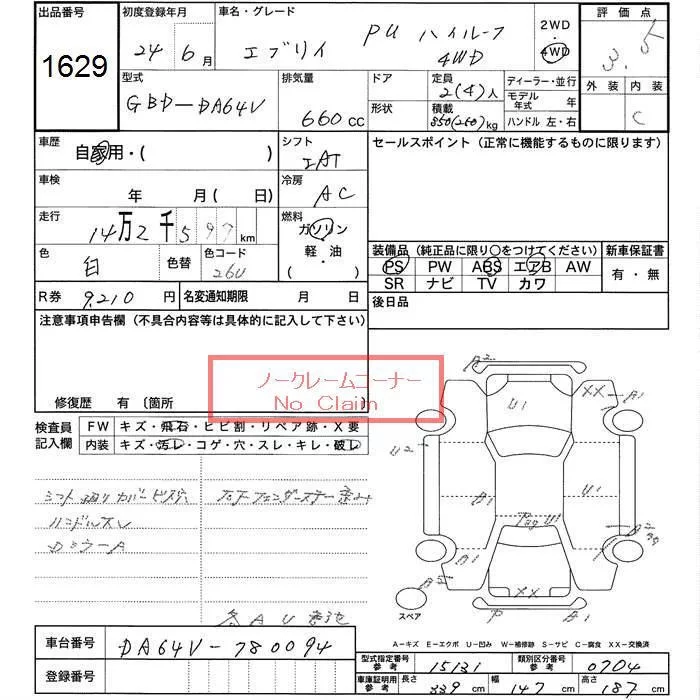 出品番号 1629
初度登録年月 24年 6月
車名・グレード エブリイ PU ハイルーフ 4WD
2WD・4WD
評価点 3.5
外装 内装 C
型式 GBD-DA64V
排気量 660cc
ドア 形状
定員 2(4)人
積載 350(200)kg
ディーラー・並行
モデル年式 年
ハンドル 左・右
車歴 自家用・( )
シフト IAT
セールスポイント (正常に機能するものに限ります)
車検 年 月 ( 日)
冷房 AC
走行 14万2千597km
燃料 ガソリン 軽・油 ( ・ )
色 白 色替 色コード 26U
装備品 (純正品に限り〇をつけてください) 新車保証書
PS PW ABS エアB AW 有・無
SR ナビ TV カワ
R券 9,210円 名変通知期限 月 日
後日品
注意事項申告欄 (不具合内容等は具体的に記入して下さい)
ノークレームコーナー
No Claim
修復歴 有 〔箇所
検査員記入欄
FW キズ・飛石・ヒビ割・リペア跡・X要
内装 キズ・汚レ・コゲ・穴・スレ・キレ・破レ
シフト廻りカバービス穴
ハンドルスレ
DミラーA
各AU
A2 XX A1
U1
U2 U1
A1 U1
XX
P A1
スペア
A-キズ E-エクボ U-凹み W-補修跡 S-サビ C-腐食 XX-交換済
車台番号 DA64V-780094
登録番号
型式指定番号 参考 15131 類別区分番号 参考 0704
車庫証明用 参考 長さ 339cm 幅 147cm 高さ 187cm